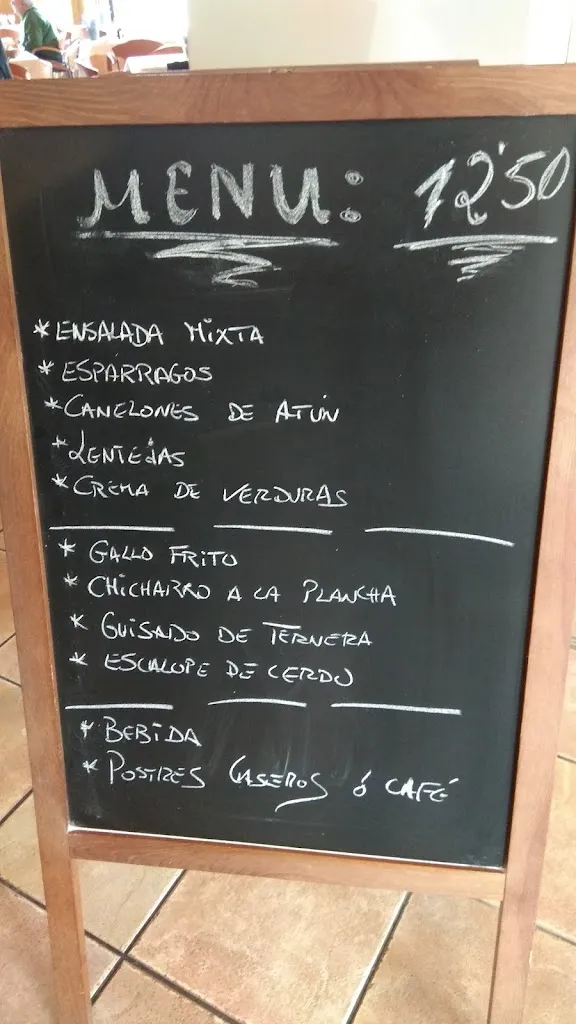 MENU: 12'50
* ENSALADA MIXTA
* ESPARRAGOS
* CANELONES DE ATÚN
* LENTEJAS
* CREMA DE VERDURAS
* GALLO FRITO
* CHICHARRO A LA PLANCHA
* GUISADO DE TERNERA
* ESCALOPE DE CERDO
* BEBIDA
* POSTRES CASEROS ó CAFÉ